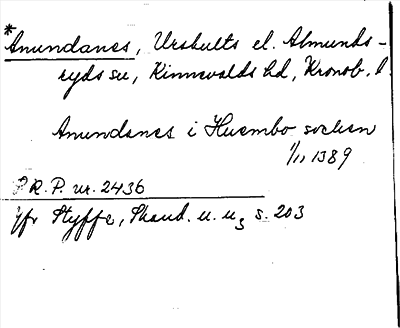 *Anundanes, Urshults el. Almunds-
ryds sn, Kinnevalds hd, Kronob. l.
Anundanes i Huembo socken
1/11 1389
P.R.P. nr. 2436
Jfr Styffe, Skand. u. u3 s. 203